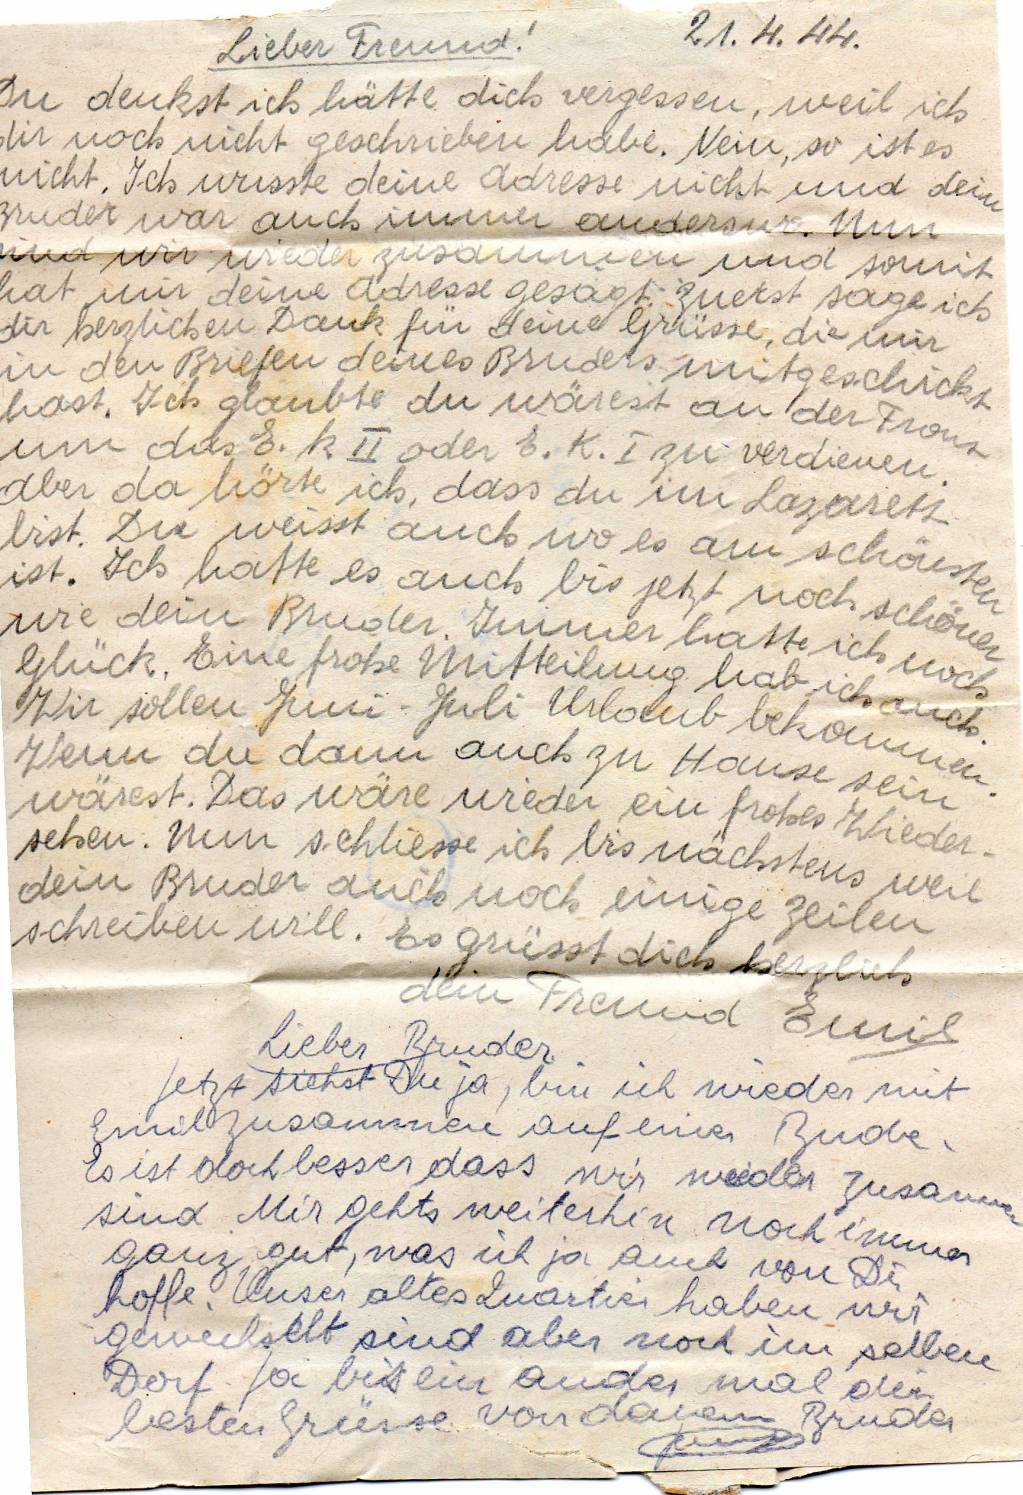 21.4.44.
Lieber Freund!
Du denkst ich hätte dich vergessen, weil ich
dir noch nicht geschrieben habe. Nein, so ist es
nicht. Ich wusste deine Adresse nicht und dein
Bruder war auch immer anderswo. Nun
sind wir wieder zusammen und somit
hat mir deine Adresse gesagt. Zuerst sage ich
dir herzlichen Dank für deine Grüsse, die mir
in den Briefen deines Bruders mitgeschickt
hast. Ich glaubte du wärest an der Front
um das E. k II oder E. K. I zu verdienen.
aber da hörte ich, dass du im Lazarett
bist. Du weisst auch wo es am schönsten
ist. Ich hatte es auch bis jetzt noch schöner
wie dein Bruder. Immer hatte ich noch
Glück. Eine frohe Mitteilung hab ich auch.
Wir sollen Juni - Juli Urlaub bekommen.
Wenn du dann auch zu Hause sein
wärest. Das wäre wieder ein frohes Wieder-
sehen. Nun schliesse ich bis nächstens weil
dein Bruder auch noch einige Zeilen
schreiben will. Es grüsst dich herzlich
dein Freund Emil
Lieber Bruder
Jetzt siehst Du ja, bin ich wieder mit
Emil zusammen auf einer Bude.
Es ist doch besser dass wir wieder zusammen
sind Mir gehts weiterhin noch immer
ganz gut, was ich ja auch von Dir
hoffe. Unser altes Quartier haben wir
gewechselt sind aber noch im selben
Dorf. Ja bis ein ander mal die
besten Grüsse von Bruder